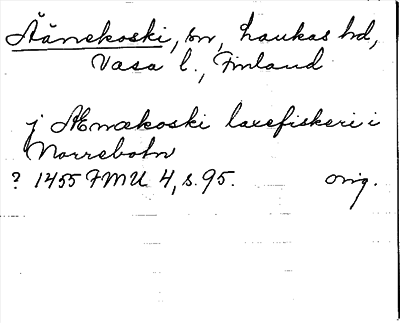 Äänekoski, sn, Laukas hd,
Vasa l., Finland
j Ænækoski laxefiskeri i
Norrebotn
? 1455 FMU 4, s. 95. orig.